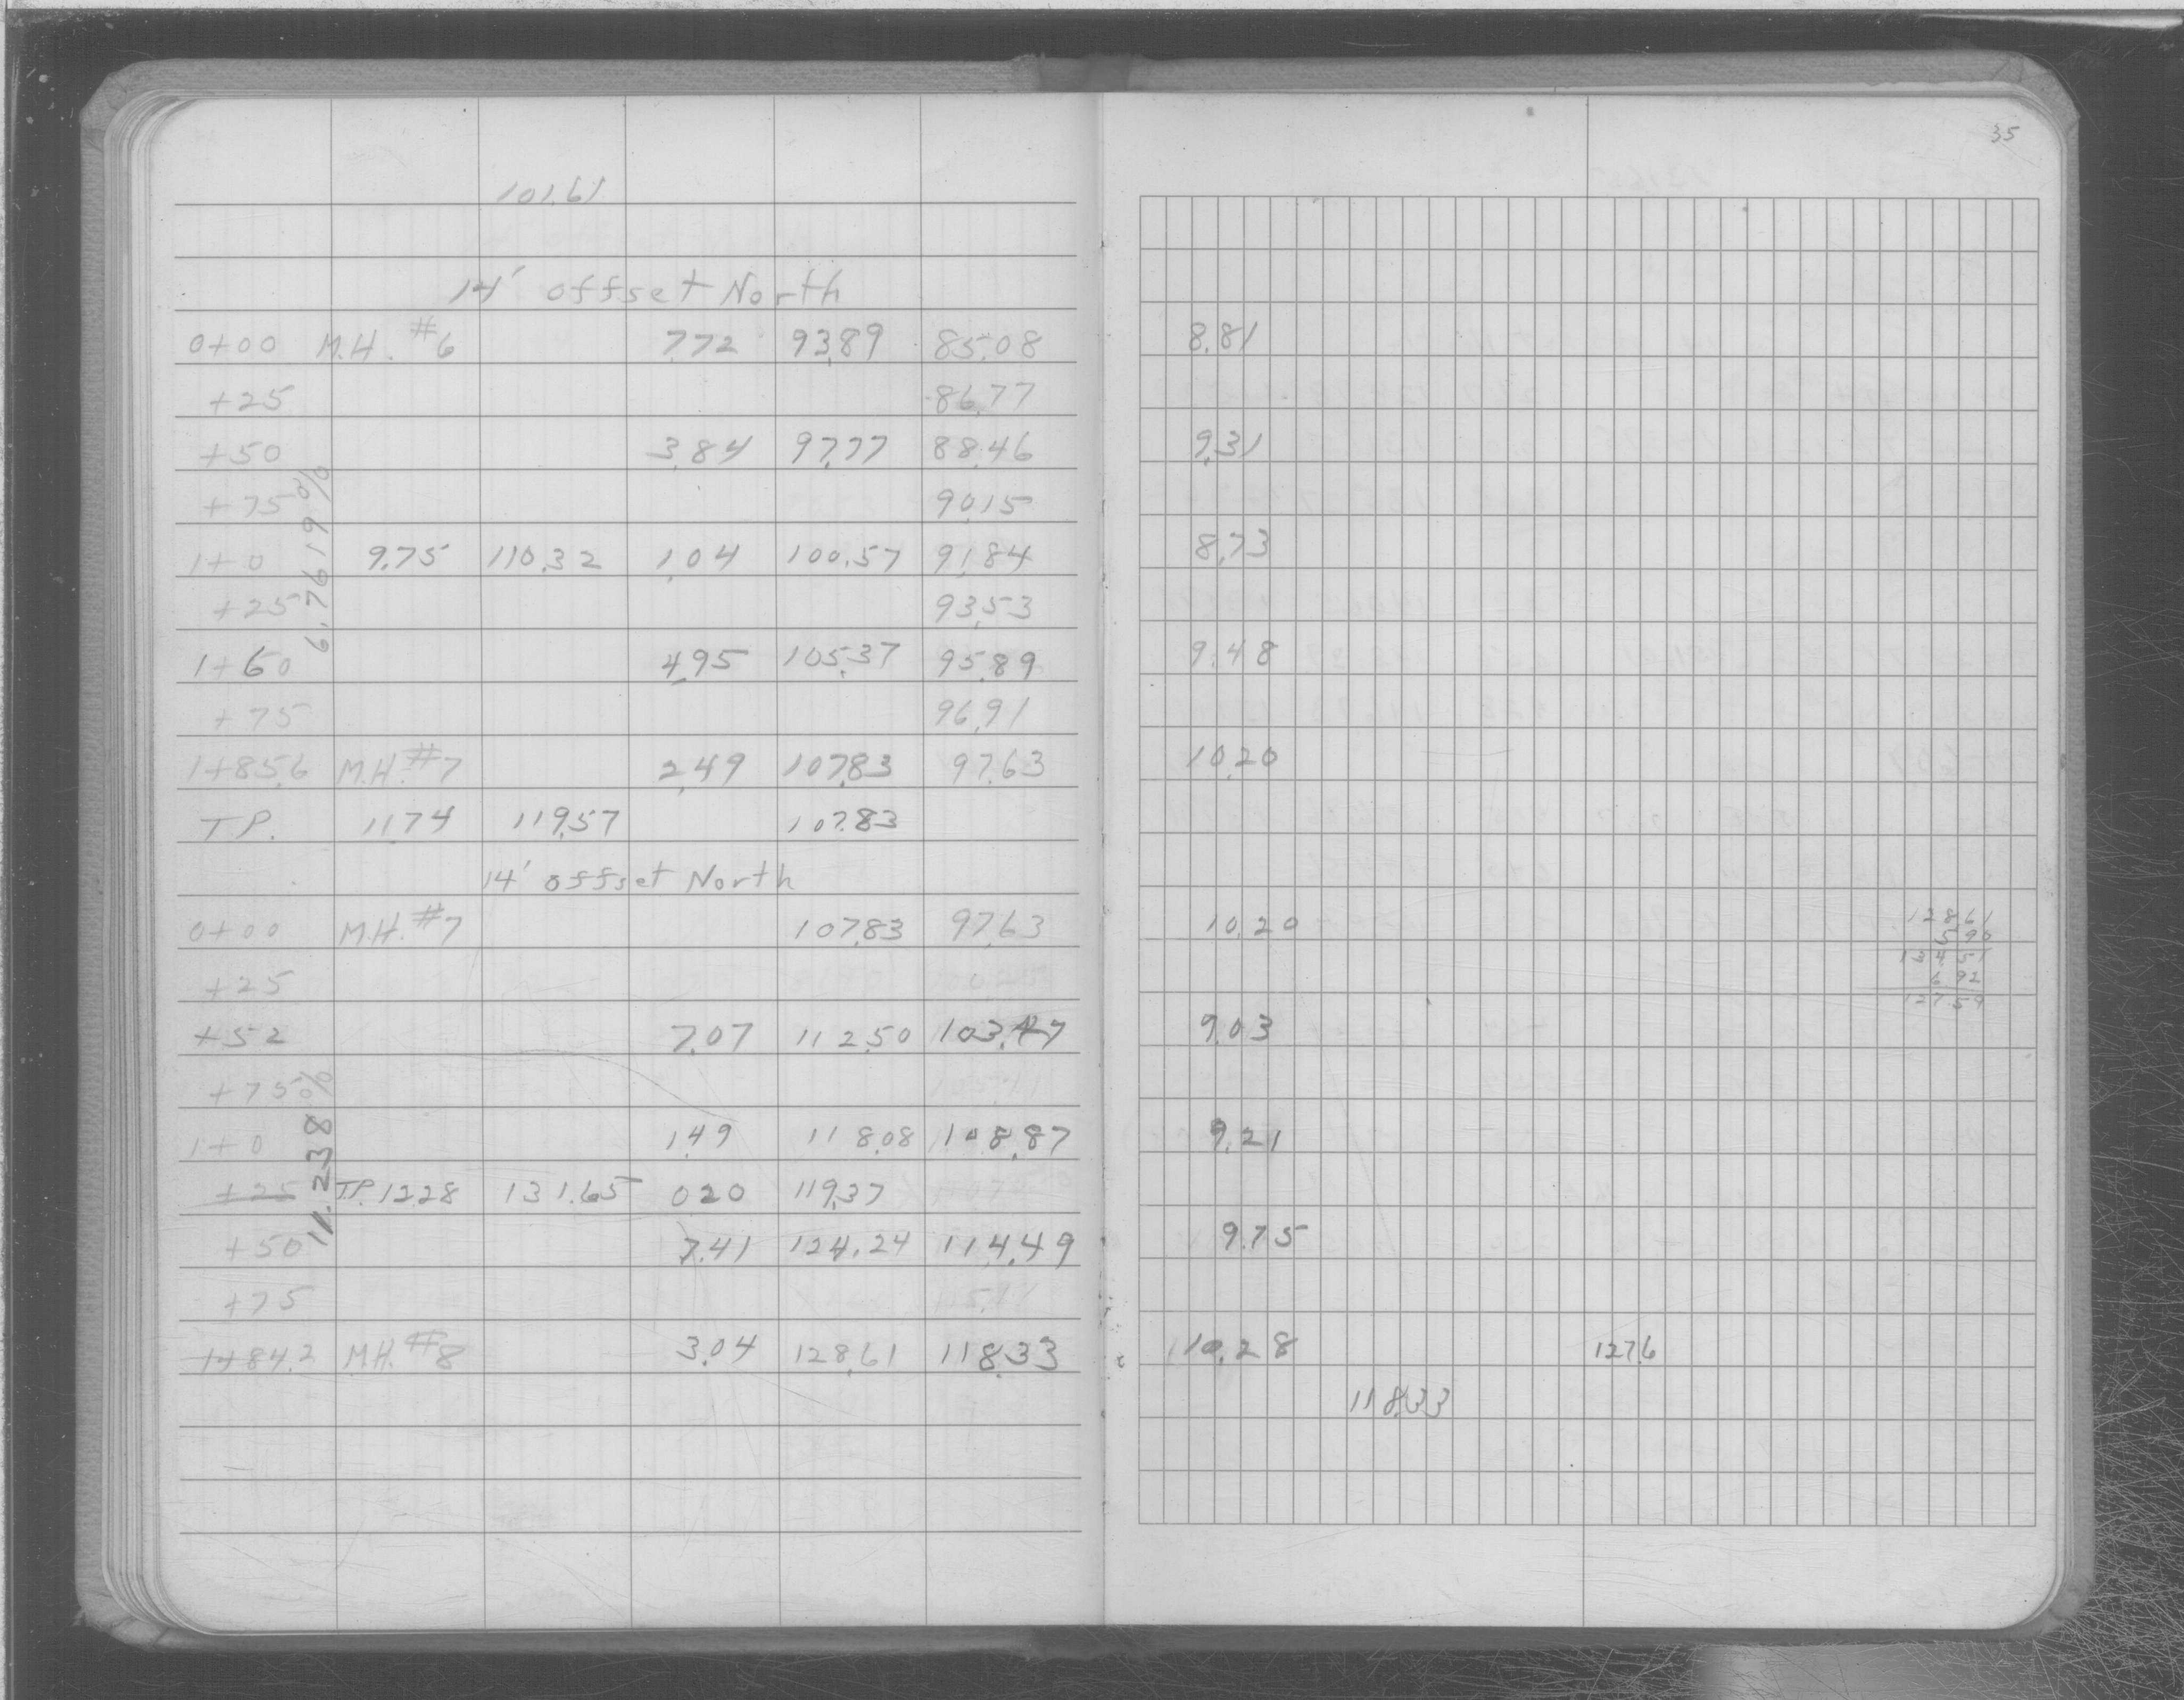 35
101.61
14' offset North
0+00 M.H. #6 7.72 93.89 85.08 8.81
+25 86.77
+50 3.84 97.77 88.46 9.31
+75 90.15
1+0 9.75 110.32 1.04 100.57 91.84 8.73
+25 93.53
1+60 4.95 105.37 95.89 9.48
+75 96.91
1+85.6 M.H. #7 2.49 107.83 97.63 10.20
T.P. 11.74 119.57 107.83
6.7619%
14' offset North
0+00 M.H. #7 107.83 97.63 10.20
+25
+52 7.07 112.50 103.47 9.03
+75
1+0 1.49 118.08 108.87 9.21
+25 T.P. 12.28 131.65 0.20 119.37
+50 7.41 124.24 114.49 9.75
+75
1+84.2 M.H. #8 3.04 128.61 118.33 10.28 127.6
11.238%
118.33
128.61
5.90
134.51
6.92
127.59